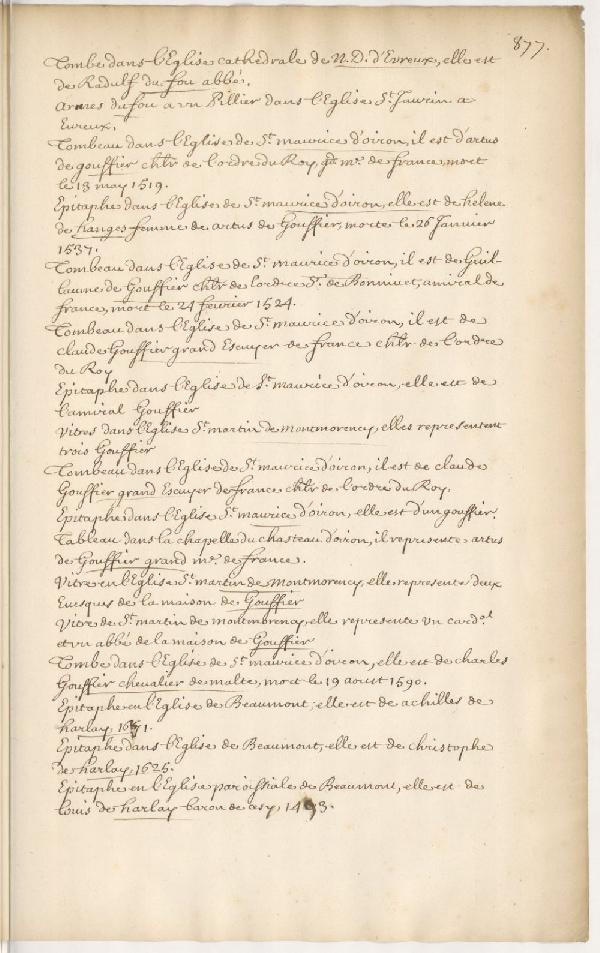 877.
Tombe dans l'Eglise cathedrale de N. D. d'Evreux, elle est
de Radulf du fou abbé.
armes du fou a un Pillier dans l'Eglise St. Taurin a
Evreux.
Tombeau dans l'Eglise de St. maurice d'oiron, il est d'artus
de gouffier chlr de l'ordre du Roy, gd. me. de france, mort
le 13 may 1519.
Epitaphe dans l'Eglise de St. maurice d'oiron, elle est de helene
de hanges femme de artus de Gouffier, morte le 26 Januier
1537.
Tombeau dans l'Eglise de St. maurice d'oiron, il est de Guil-
laume de Gouffier chlr de l'ordre Sr. de Bonnivet, amiral de
france, mort le 24 feurier 1524.
Tombeau dans l'Eglise de St. maurice d'oiron, il est de
Claude Gouffier grand Escuyer de france chlr de l'ordre
du Roy
Epitaphe dans l'Eglise de St. maurice d'oiron, elle est de
l'amiral Gouffier
Vitres dans l'Eglise St. martin de Montmorency, elles representent
trois Gouffier
Tombeau dans l'Eglise de St. maurice d'oiron, il est de claude
Gouffier grand Escuyer de france chlr de l'ordre du Roy.
Epitaphe dans l'Eglise St. maurice d'oiron, elle est d'un gouffier.
Tableau dans la chapelle du chasteau d'oiron, il represente artus
de Gouffier grand me. de france.
Vitre en l'Eglise St. martin de Montmorency, elle represente deux
Euesques de la maison de Gouffier
Vitre de St. martin de montmorency, elle represente un card.al
et un abbé de la maison de Gouffier
Tombe dans l'Eglise de St. maurice d'oiron, elle est de charles
Gouffier chevalier de malte, mort le 19 aoust 1590.
Epitaphe en l'Eglise de Beaumont, elle est de achilles de
harlay,
Epitaphe dans l'Eglise de Beaumont, elle est de christophe
de harlay, 1625.
Epitaphe en l'Eglise paroissiale de Beaumont, elle est de
louis de harlay baron de